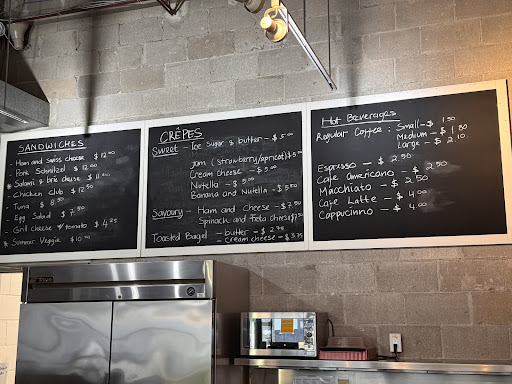 SANDWICHES
- Ham and Swiss cheese $12.00
- Pork Schnitzel $12.00
* Salami & brie cheese $11.00
- Chicken Club $12.50
- Tuna $8.50
- Egg Salad $7.50
- Grill cheese & tomato $4.75
* Summer Veggie $10.00
CRÊPES
Sweet - Ice sugar & butter - $5.00
Jam (strawberry/apricot) $5.00
Cream cheese - $5.00
Nutella - $5.00
Banana and Nutella - $5.50
Savoury - Ham and cheese - $7.50
Spinach and Feta cheese
Toasted Bagel - butter - $2.75
- cream cheese - $3.75
Hot Beverages
Regular Coffee : Small - $1.50
Medium - $1.80
Large - $2.10
Espresso - $2.50
Cafe Americano - $2.50
Macchiato - $2.50
Cafe Latte - $4.00
Cappucinno - $4.00